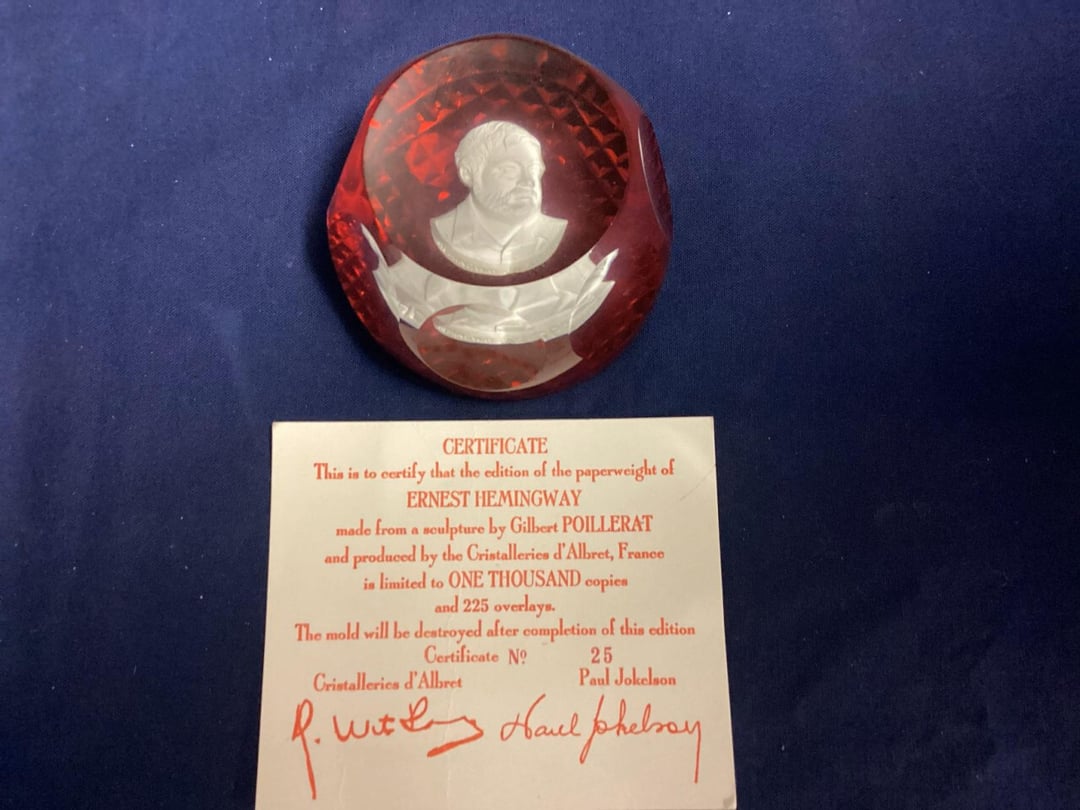 CERTIFICATE
This is to certify that the edition of the paperweight of
ERNEST HEMINGWAY
made from a sculpture by Gilbert POILLERAT
and produced by the Cristalleries d'Albret, France
is limited to ONE THOUSAND copies
and 225 overlays.
The mold will be destroyed after completion of this edition
Certificate Nº 25
Cristalleries d'Albret Paul Jokelson
Paul Jokelson